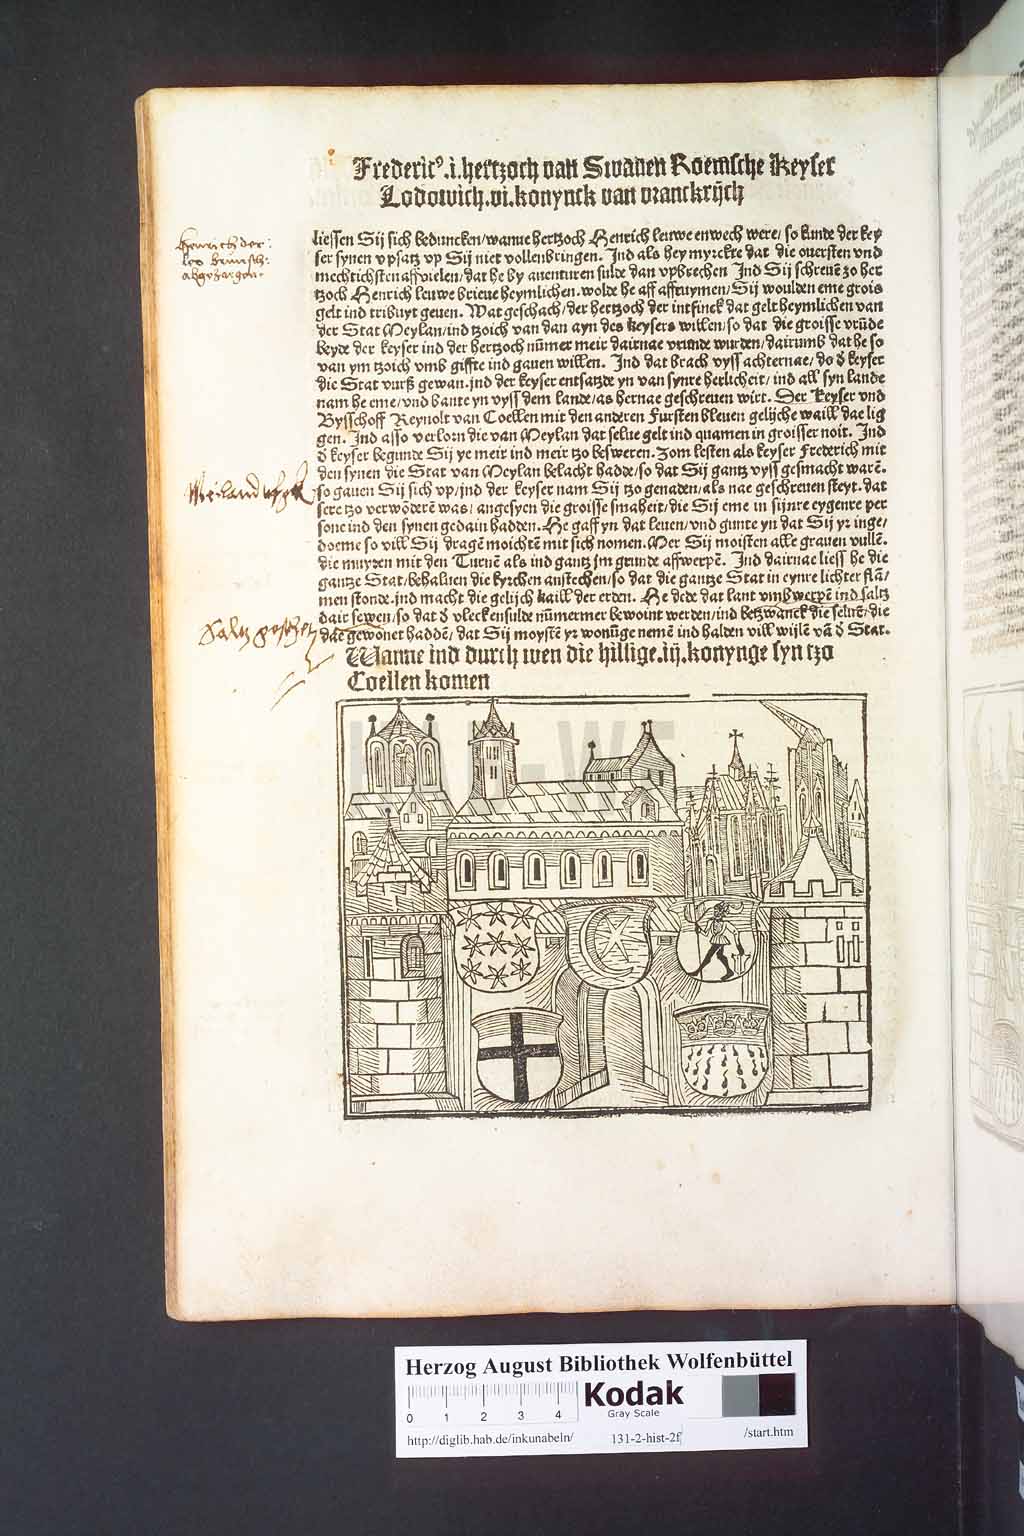 Frederic⁹.i.hertzoch van Swaven Roemsche Keyser
Lodowich.vi.konynck van vranckrijch
liessen Sij sich beduncken/wanne hertzoch Henrich leuwe enwech were/so kunde der key
ser synen vpsatz vp Sij niet vollenbringen. Ind als hey myrckte dat die oversten vnd
mechtichsten affvielen/dat he by auenturen sulde dan vpbrechen Ind Sij schreuē zo her
tzoch Henrich leuwe brieue heymlichen.wolde he aff affruymen/Sij woulden eme grois
gelt ind tribuyt geuen. Wat geschach/der hertzoch der intfinck dat gelt heymlichen van
der Stat Meylan/ind tzoich van dan ayn des keysers willen/so dat die groisse vrūde
beyde der keyser ind der hertzoch nūmer meir dairnae vrunde wurden/dairumb dat he so
van ym tzoich vmb giffte ind gauen willen. Ind dat brach vyss achternae/do d̄ keyser
die Stat vurß gewan.ind der keyser entsatzde yn van synre herlicheit/ind all syn lande
nam he eme/vnd bante yn vyss dem lande/as hernae geschreuen wirt. Der Keyser vnd
Bysschoff Reynolt van Coellen mit den anderen Fursten bleuen gelijche waill dae lig
gen. Ind asso verlorn die van Meylan dat selue gelt ind quamen in groisser noit. Ind
d̄ keyser begunde Sij ye meir ind meir tzo besweren. Zom lesten als keyser Frederich mit
den synen die Stat van Meylan belacht hadde/so dat Sij gantz vyss gesmacht warē.
so gauen Sij sich vp/ind der keyser nam Sij tzo genaden/als nae geschreuen steyt. dat
sere tzo verwōderē was/angesyen die groisse smaheit/die Sij eme in sijnre eygenre per
sone ind den synen gedain hadden. He gaff yn dat leuen/vnd gunte yn dat Sij yr inge/
doeme so vill Sij dragē moichtē mit sich nomen. Mer Sij moisten alle grauen vullē.
die muyren mit den Turnē als ind gantz jm grunde affwerpē. Ind dairnae liess he die
gantze Stat/behaluen die kyrchen anstechen/so dat die gantze Stat in eynre lichter flā/
men stonde.ind macht die gelijch kaill der erden. He dede dat lant vmbwerpē ind saltz
dair sewen/so dat d̄ vlecken sulde nūmermer bewoint werden/ind betzwanck die selue/die
dae gewonet haddē/dat Sij moystē yr wonūge nemē ind halden vill wijlē vā d̄ Stat.
Wanne ind durch wen die hillige.iij.konynge syn tzo
Coellen komen
Henrich der
leo
Meiland
Saltz
Herzog August Bibliothek Wolfenbüttel
0 1 2 3 4
Kodak
Gray Scale
http://diglib.hab.de/inkunabeln/ 131-2-hist-2f /start.htm